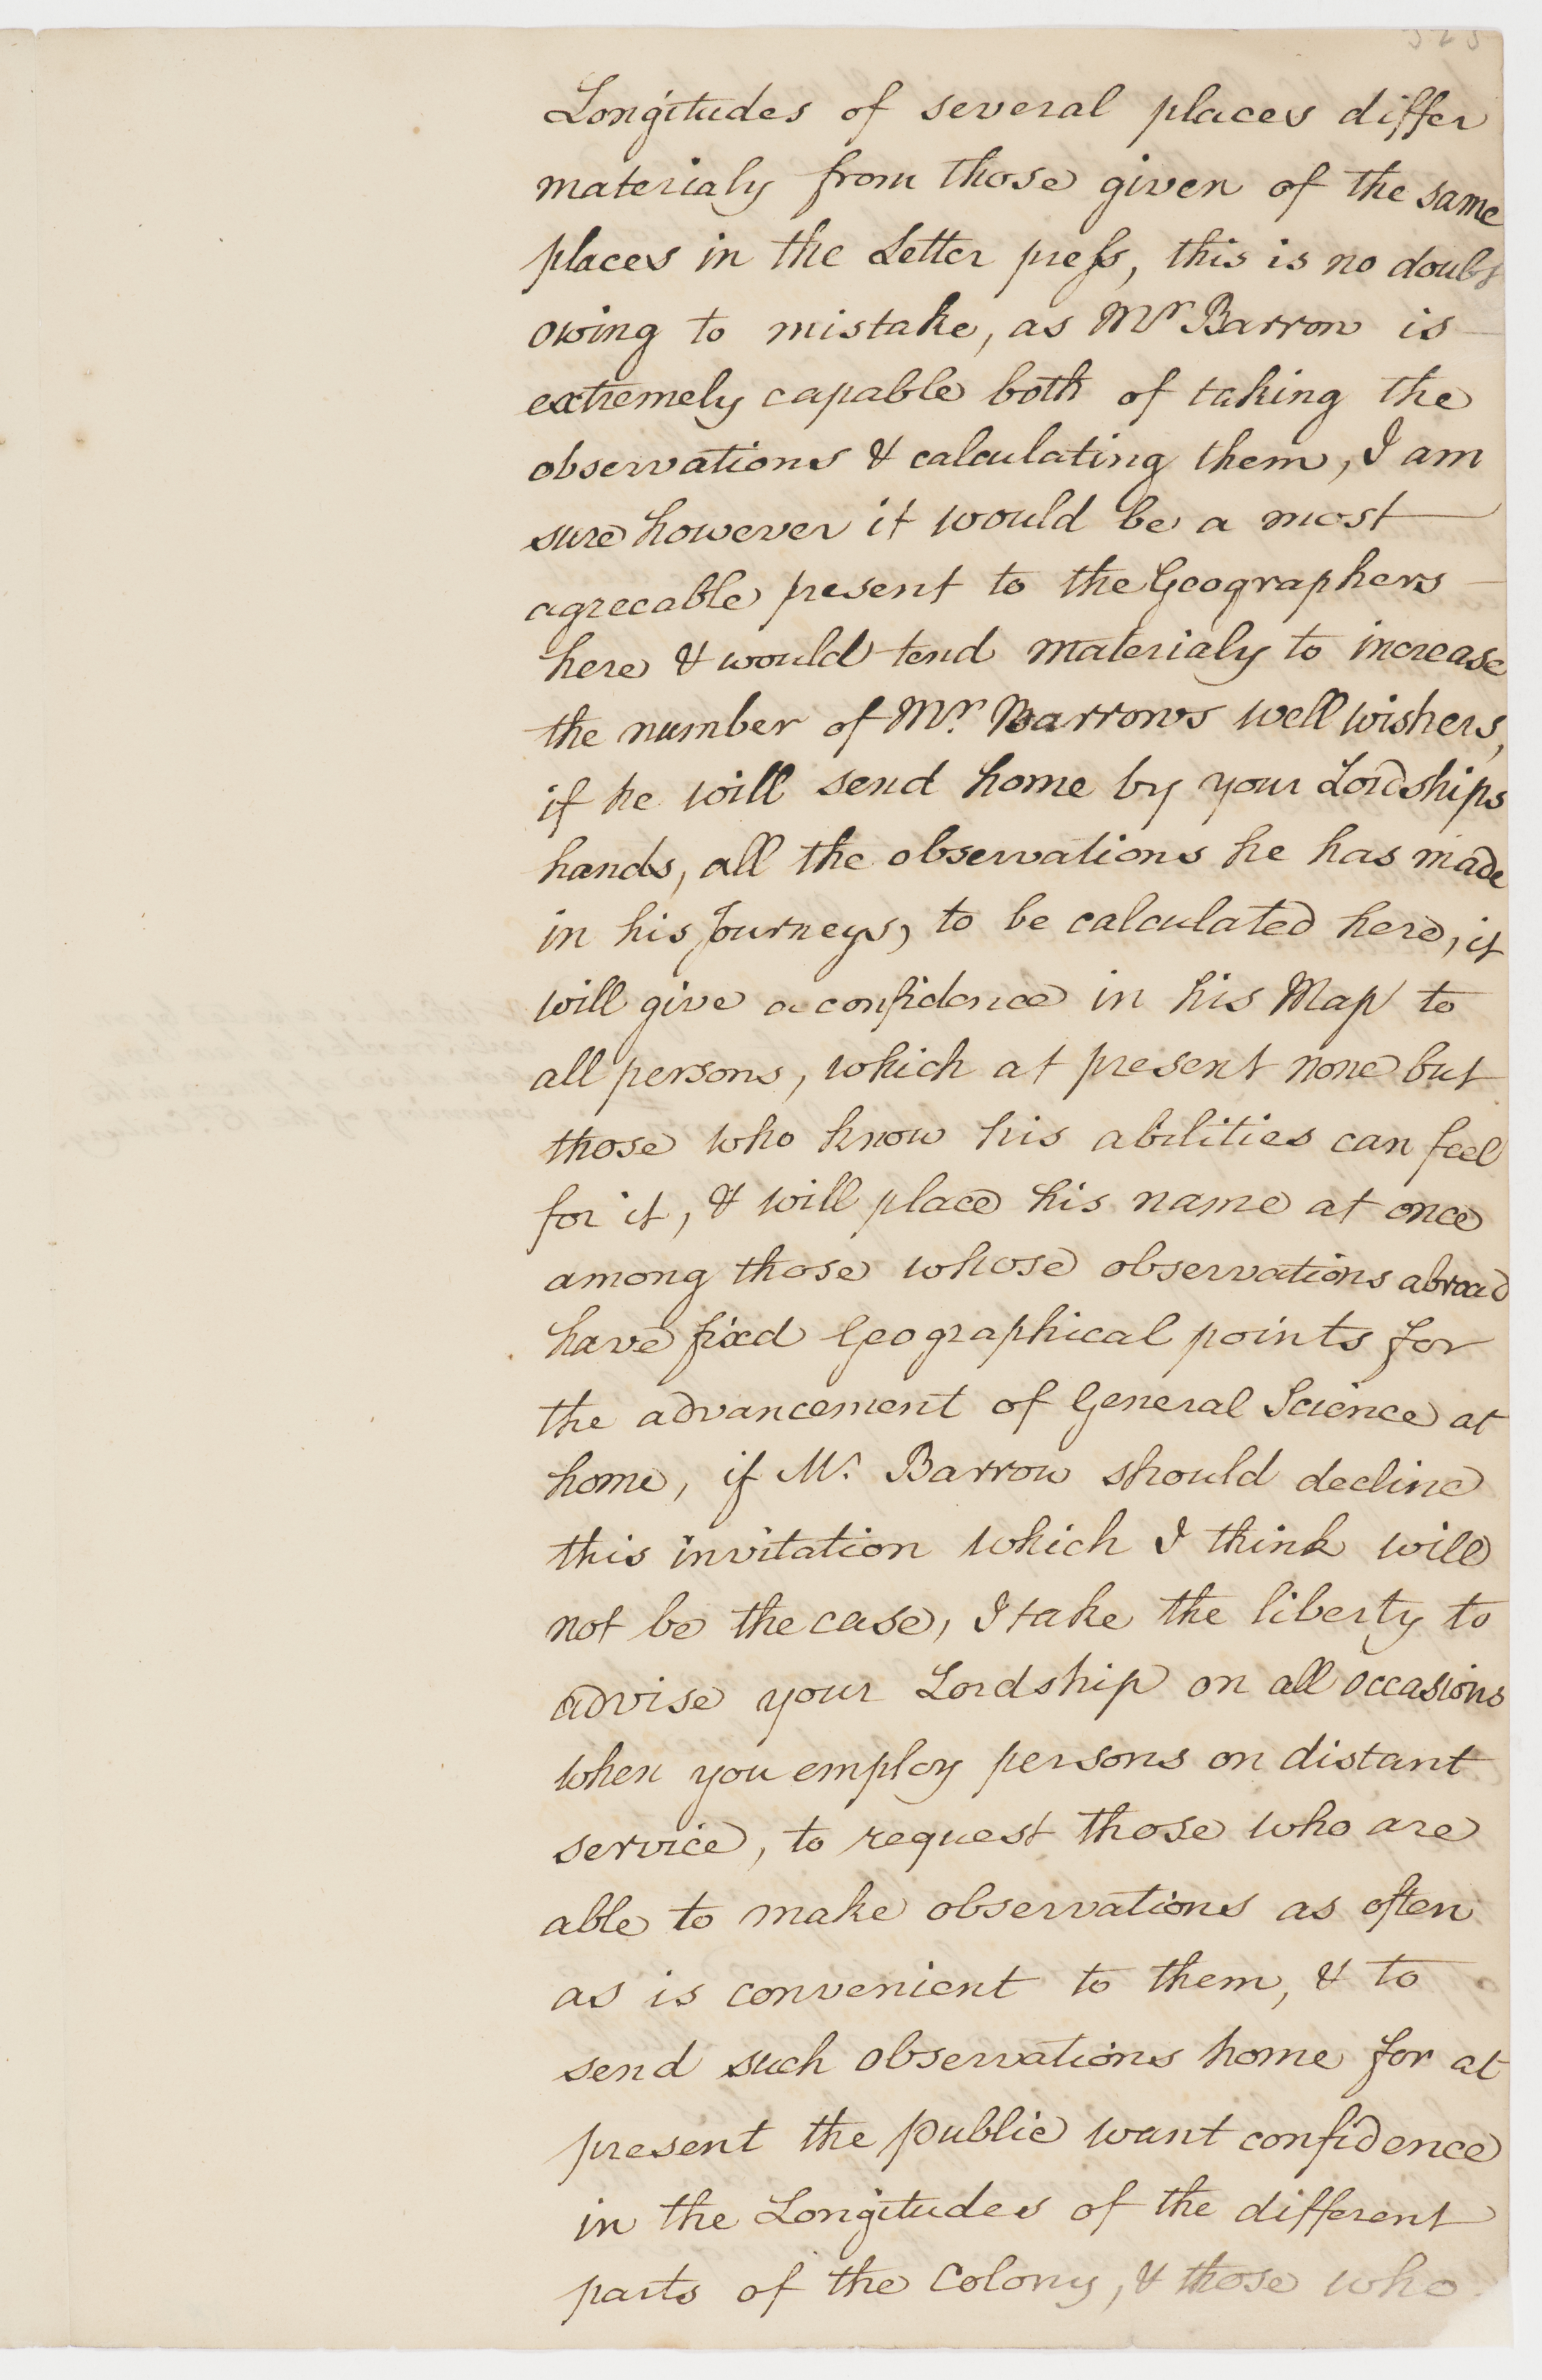 Longitudes of several places differ
materialy from those given of the same
places in the Letter press, this is no doubt
owing to mistake, as Mr Barrow is
extremely capable both of taking the
observations & calculating them, I am
sure however it would be a most
agreeable present to the Geographers
here & would tend materialy to increase
the number of Mr. Barrows well wishers,
if he will send home by your Lordships
hands, all the observations he has made
in his Journeys, to be calculated here, it
will give a confidence in his Map to
all persons, which at present none but
those who know his abilities can feel
for it, & will place his name at once
among those whose observations abroad
have fixd Geographical points for
the advancement of General Science at
home, if Mr. Barrow should decline
this invitation which I think will
not be the case, I take the liberty to
advise your Lordship on all occasions
when you employ persons on distant
service, to request those who are
able to make observations as often
as is convenient to them, & to
send such observations home for at
present the public want confidence
in the Longitudes of the different
parts of the Colony, & those who